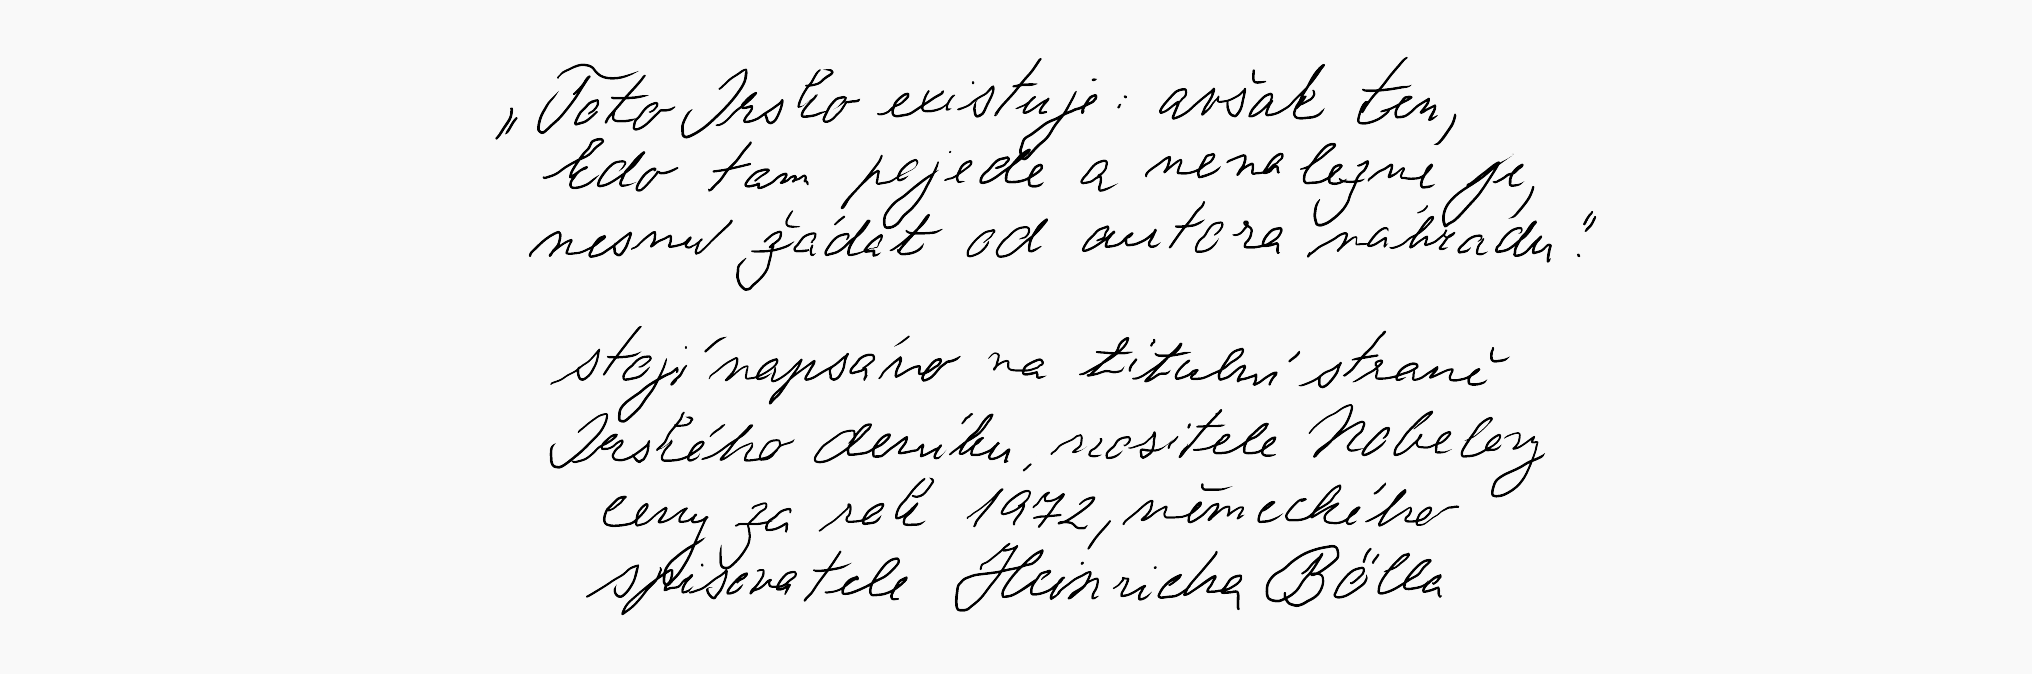 „Toto Irsko existuje: avšak ten,
kdo tam pojede a nenalezne je,
nesmí žádat od autora náhradu".
stojí napsáno na titulní straně
Irského deníku, nositele Nobelovy
ceny za rok 1972, německého
spisovatele Heinricha Bölla